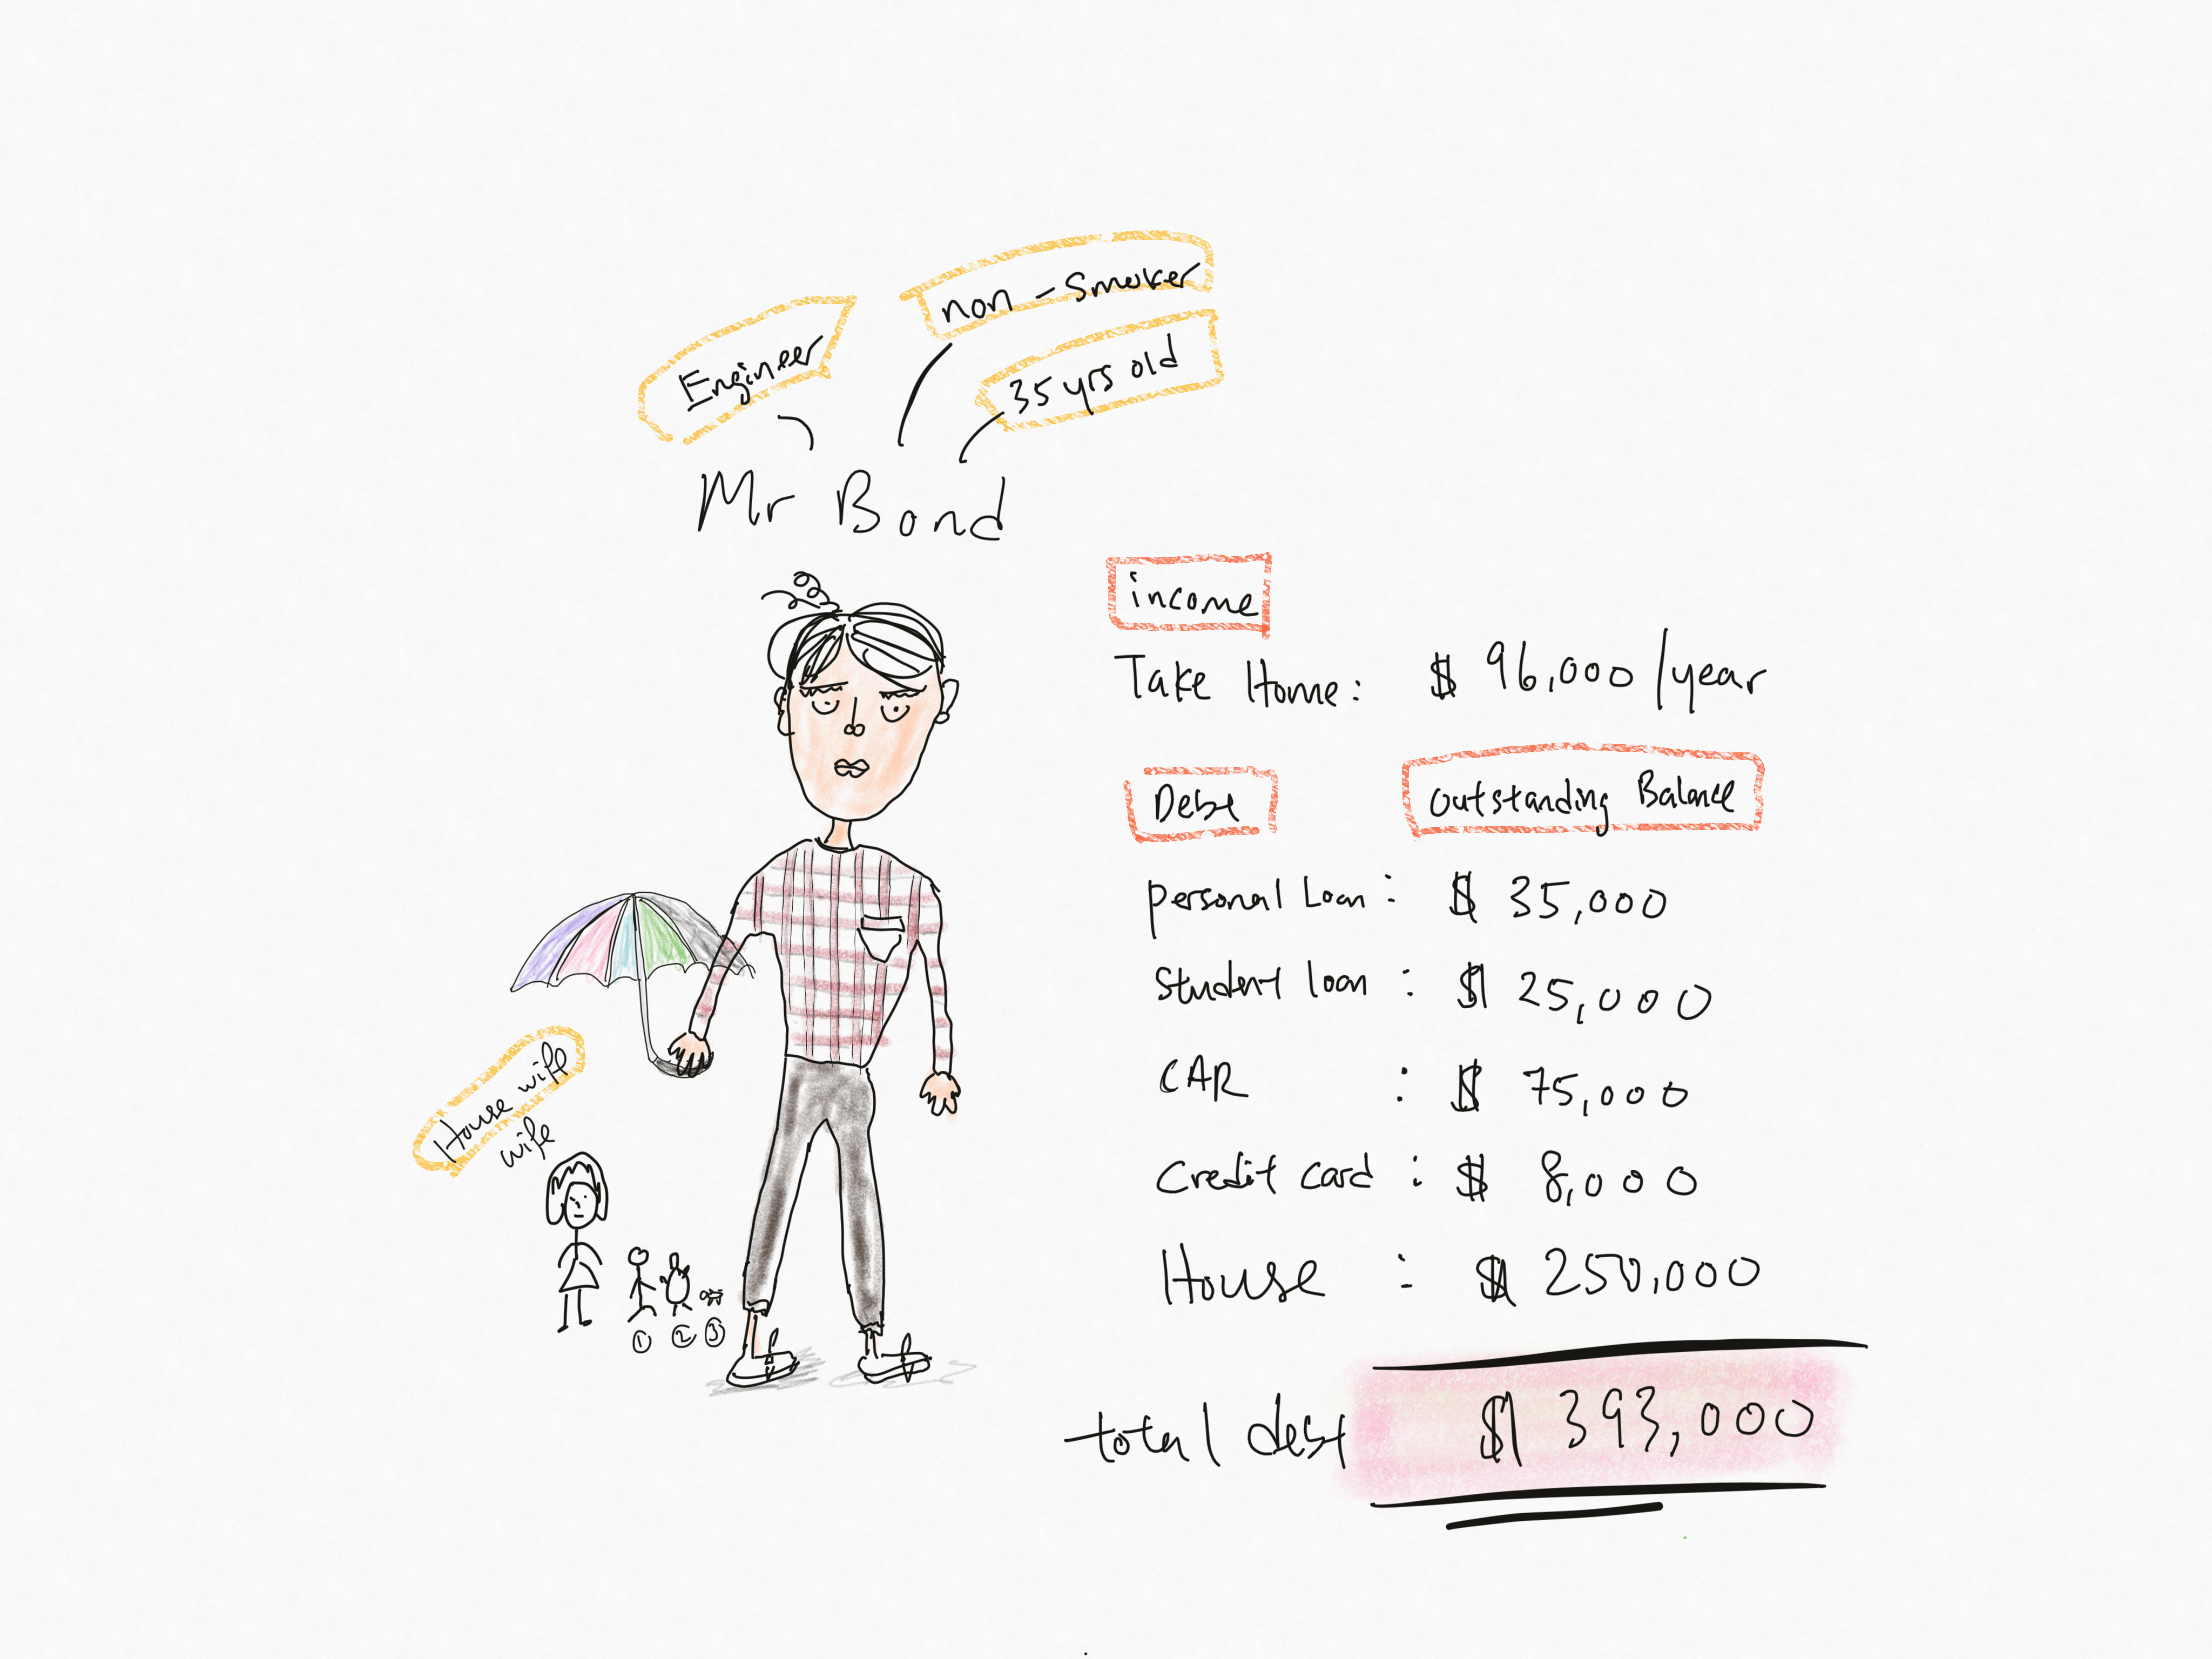 Engineer
non-smoker
35 yrs old
Mr Bond
income
Take Home: $ 96,000/year
Debt
Outstanding Balance
personal Loan: $ 35,000
Student loan: $ 25,000
CAR : $ 75,000
Credit card: $ 8,000
House : $ 250,000
total debt $ 393,000
House wife
wife
① ② ③